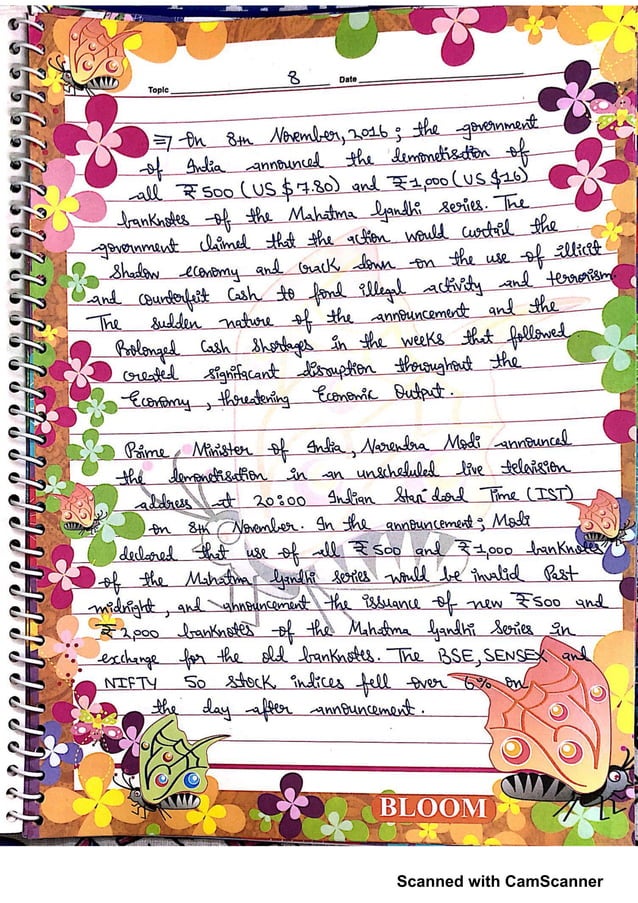 Topic 8 Date
⇒ On 8th November, 2016; the government
of India announced the demonetisation of
all ₹500 (US $7.80) and ₹1,000 (US $16)
banknotes of the Mahatma Gandhi series. The
government claimed that the action would curtail the
shadow economy and crack down on the use of illicit
and counterfeit cash to fond illegal activity and terrorism.
The sudden nature of the announcement and the
Prolonged Cash Shortages in the weeks that followed
created significant disruption thoroughout the
Economy, threatening Economic Output.
Prime Minister of India, Narendra Modi announced
the demonetisation in an unscheduled live television
address at 20:00 Indian Standard Time (IST)
on 8th November. In the announcement; Modi
declared that use of all ₹500 and ₹1,000 banknotes
of the Mahatma Gandhi Series would be invalid Past
midnight, and announcement the issuance of new ₹500 and
₹2,000 banknotes of the Mahatma Gandhi Series in
exchange for the old banknotes. The BSE, SENSEX and
NIFTY 50 stock indices fell over 6% on
the day after announcement.
BLOOM
Scanned with CamScanner